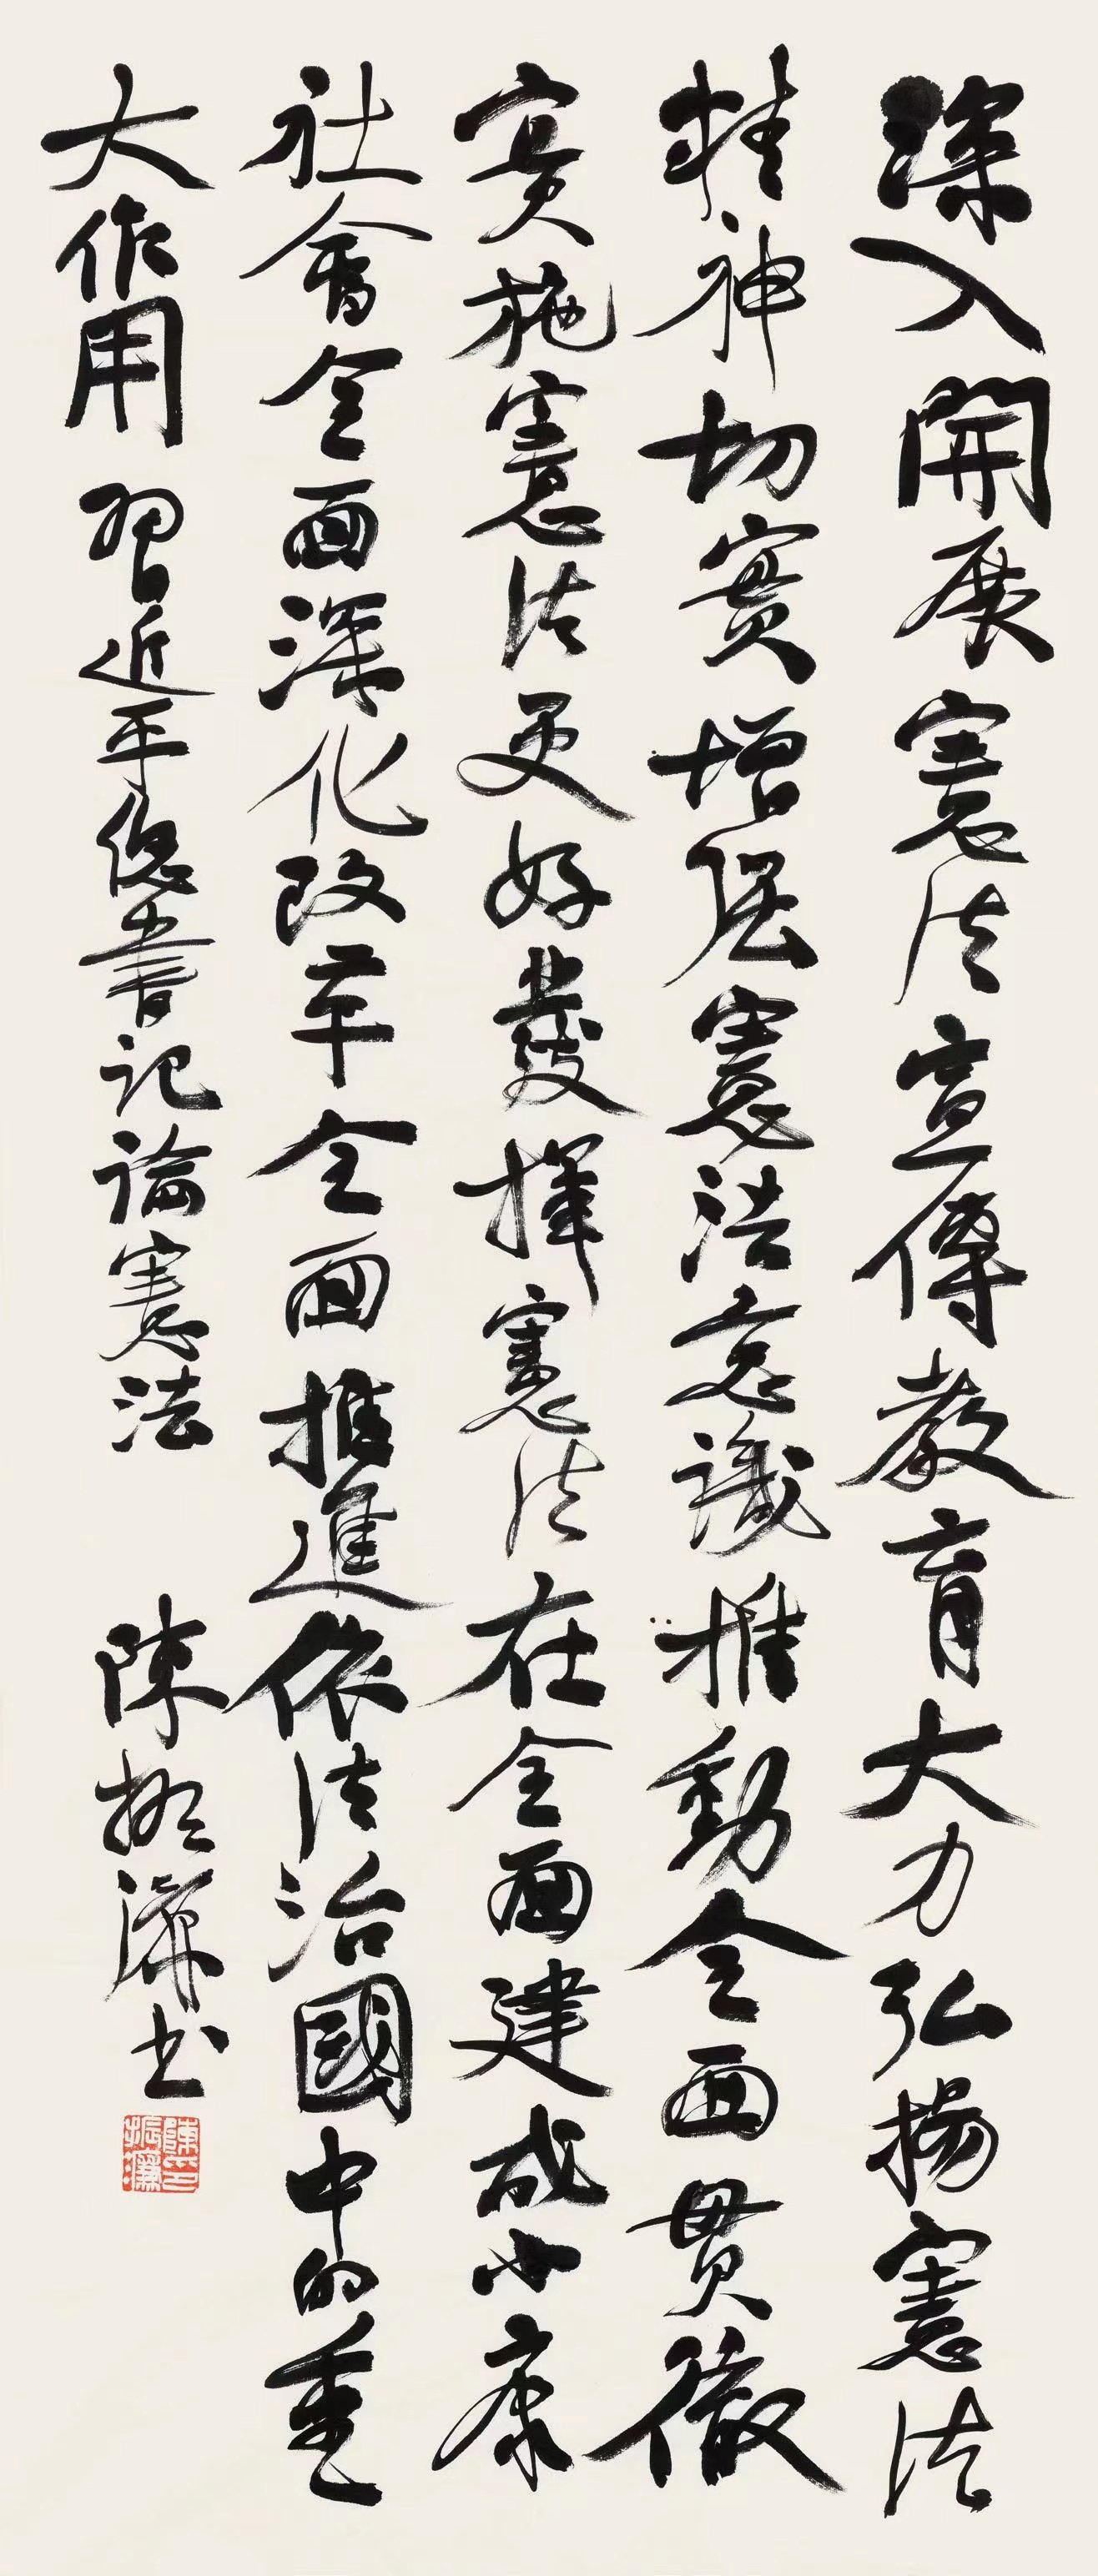 深入開展憲法宣傳教育大力弘揚憲法
精神切實增強憲法意識推動全面貫徹
實施憲法更好發揮憲法在全面建成小康
社會全面深化改革全面推進依法治國中的重
大作用 習近平總書記論憲法 陳振濂書
陳振濂印